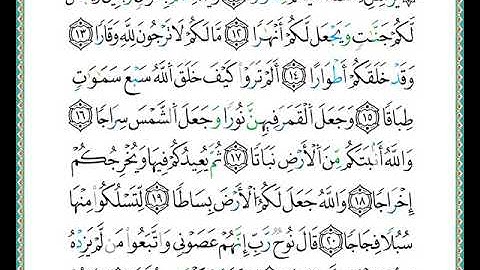 لَّكُمْ جَنَّٰتٍ وَيَجْعَل لَّكُمْ أَنْهَٰرًا ﴿١٢﴾ مَّا لَكُمْ لَا تَرْجُونَ لِلَّهِ وَقَارًا ﴿١٣﴾
وَقَدْ خَلَقَكُمْ أَطْوَارًا ﴿١٤﴾ أَلَمْ تَرَوْا۟ كَيْفَ خَلَقَ ٱللَّهُ سَبْعَ سَمَٰوَٰتٍ
طِبَاقًا ﴿١٥﴾ وَجَعَلَ ٱلْقَمَرَ فِيهِنَّ نُورًا وَجَعَلَ ٱلشَّمْسَ سِرَاجًا ﴿١٦﴾
وَٱللَّهُ أَنۢبَتَكُم مِّنَ ٱلْأَرْضِ نَبَاتًا ﴿١٧﴾ ثُمَّ يُعِيدُكُمْ فِيهَا وَيُخْرِجُكُمْ
إِخْرَاجًا ﴿١٨﴾ وَٱللَّهُ جَعَلَ لَكُمُ ٱلْأَرْضَ بِسَاطًا ﴿١٩﴾ لِّتَسْلُكُوا۟ مِنْهَا
سُبُلًا فِجَاجًا ﴿٢٠﴾ قَالَ نُوحٌ رَّبِّ إِنَّهُمْ عَصَوْنِى وَٱتَّبَعُوا۟ مَن لَّمْ يَزِدْهُ